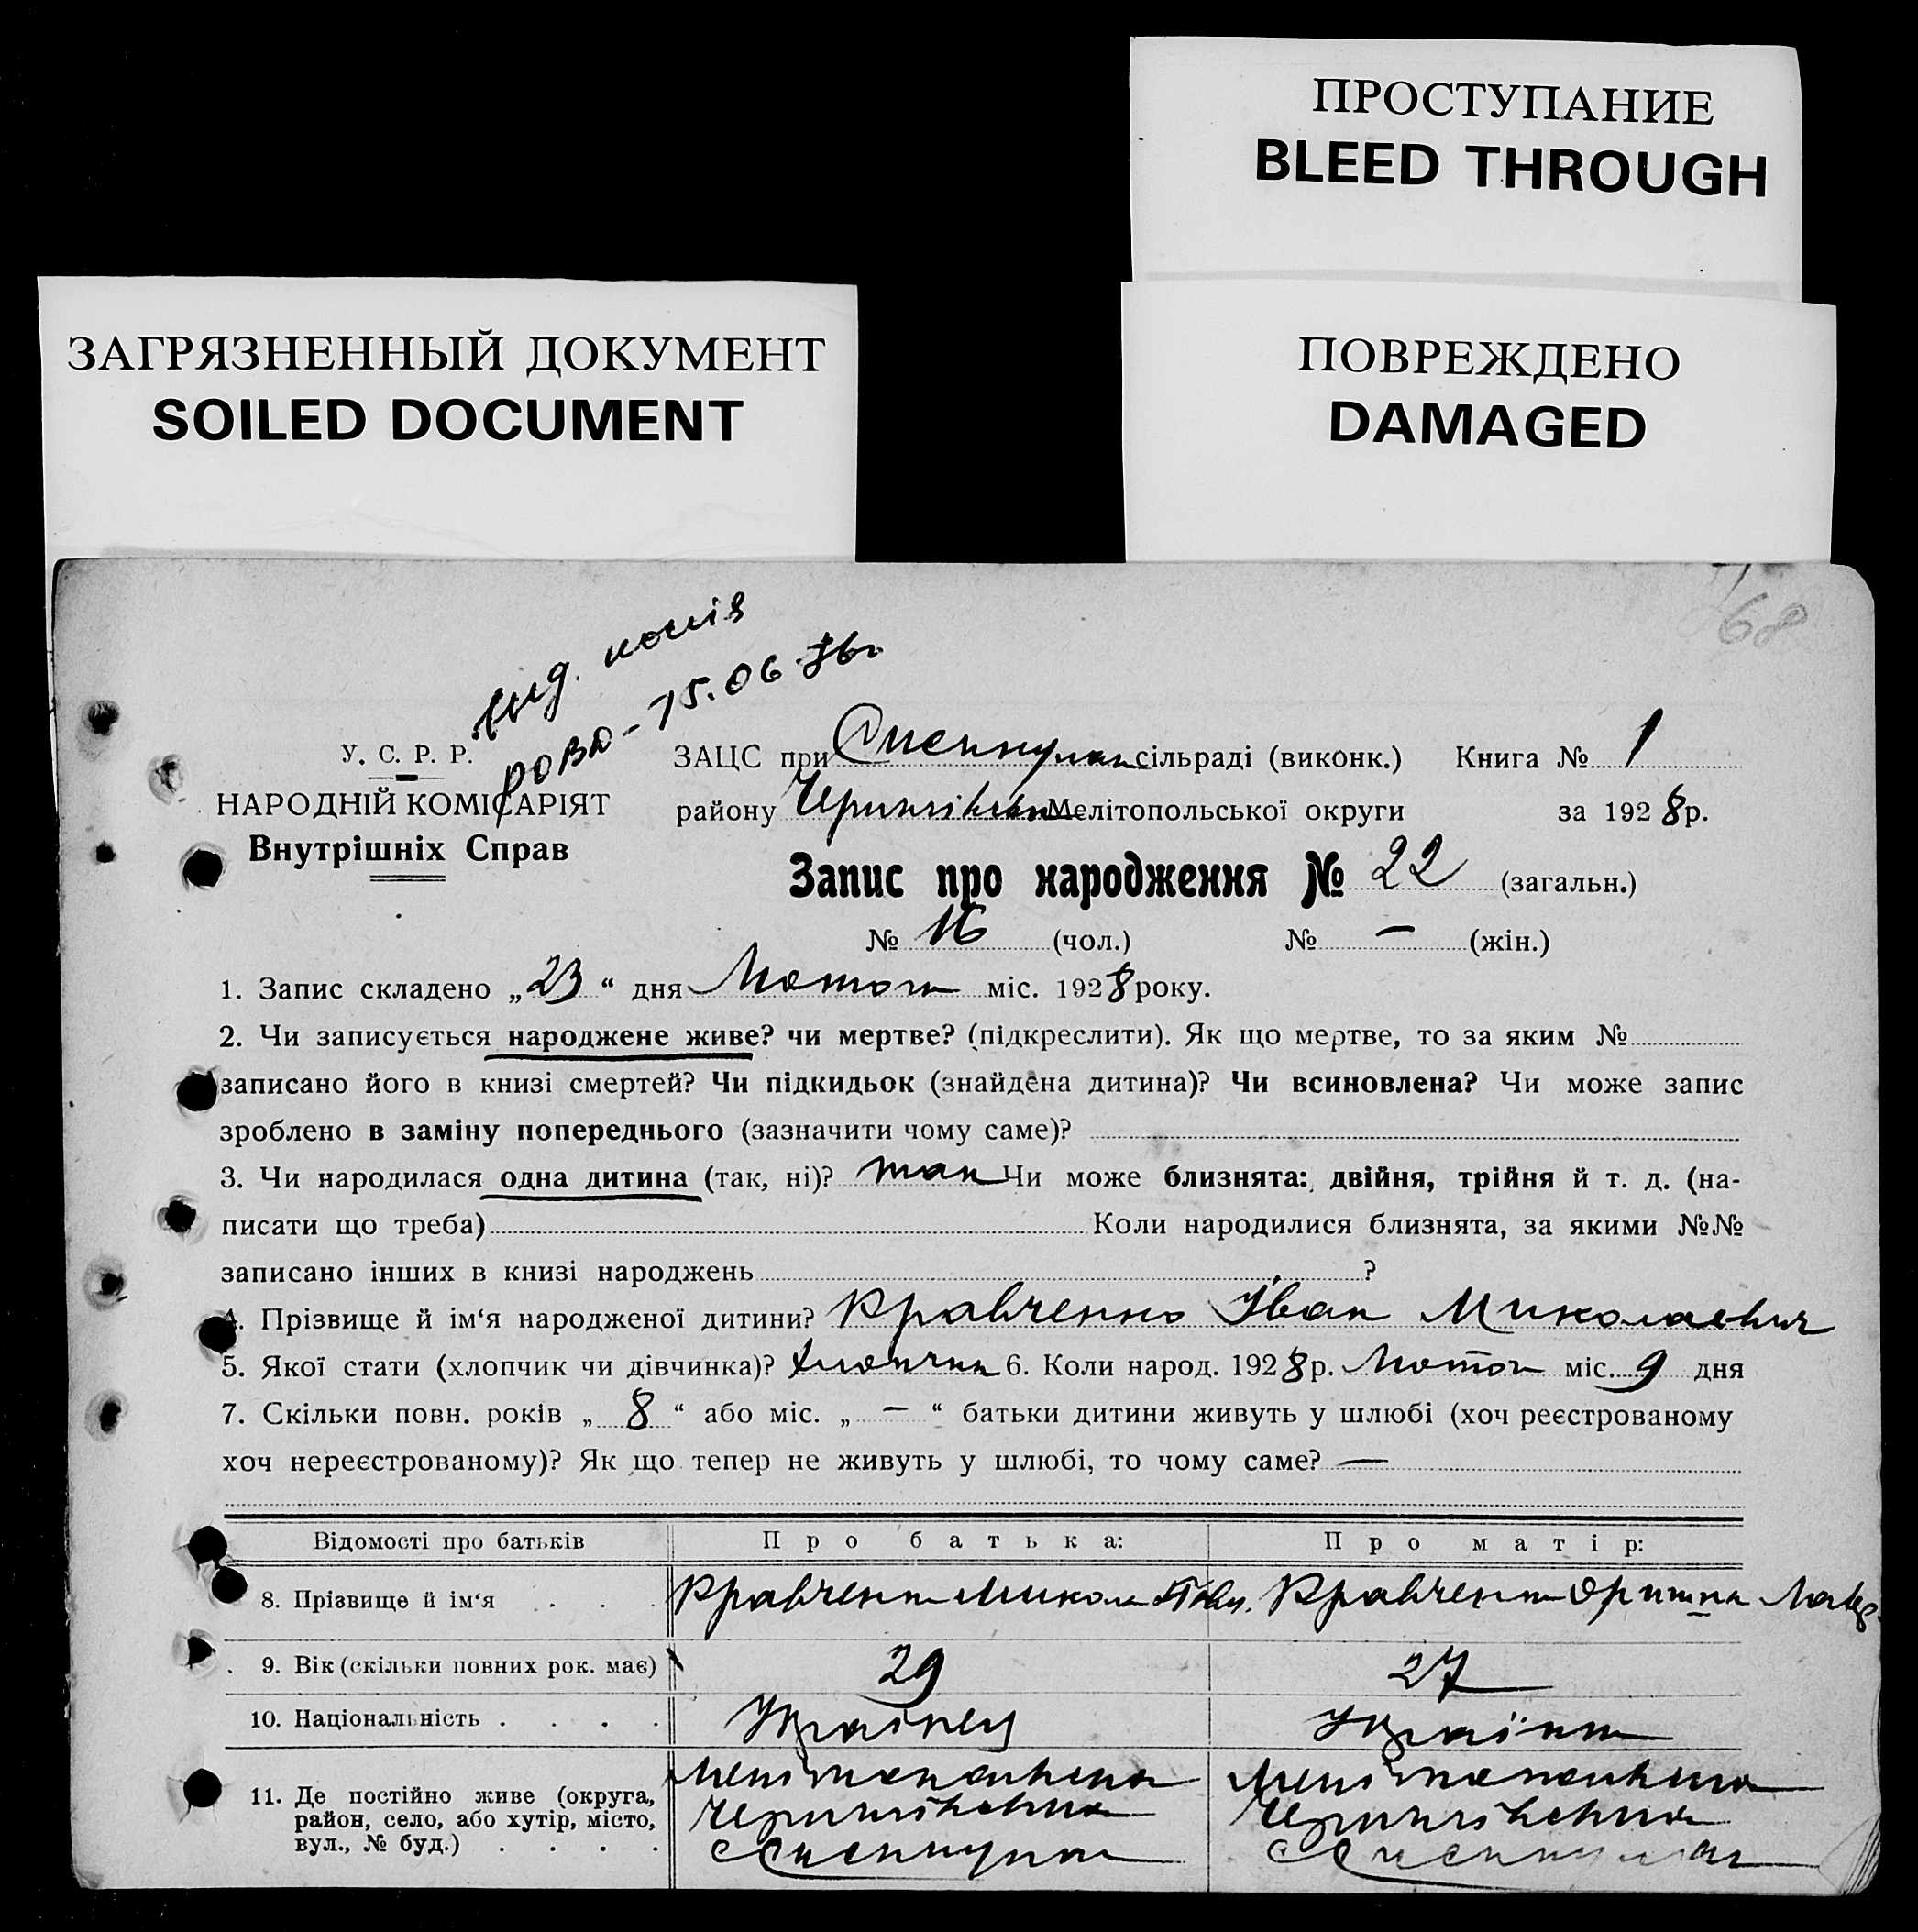 ПРОСТУПАНИЕ
BLEED THROUGH
ЗАГРЯЗНЕННЫЙ ДОКУМЕНТ
SOILED DOCUMENT
ПОВРЕЖДЕНО
DAMAGED
68
15.06.
У. С. Р. Р.
НАРОДНІЙ КОМІСАРІЯТ
Внутрішніх Справ
ЗАЦС при сільраді (виконк.) Книга № 1
району Мелітопольської округи за 1928 р.
Запис про народження № 22 (загальн.)
№ 16 (чол.) № — (жін.)
1. Запис складено „23“ дня Лютого міс. 1928 року.
2. Чи записується народжене живе? чи мертве? (підкреслити). Як що мертве, то за яким №
записано його в книзі смертей? Чи підкидьок (знайдена дитина)? Чи всиновлена? Чи може запис
зроблено в заміну попереднього (зазначити чому саме)?
3. Чи народилася одна дитина (так, ні)? так Чи може близнята: двійня, трійня й т. д. (на-
писати що треба) Коли народилися близнята, за якими №№
записано інших в книзі народжень ?
4. Прізвище й ім‘я народженої дитини? Кравченко Іван Миколаевич
5. Якої стати (хлопчик чи дівчинка)? хлопчик 6. Коли народ. 1928 р. Лютого міс. 9 дня
7. Скільки повн. років „ 8 “ або міс. „ — “ батьки дитини живуть у шлюбі (хоч реєстрованому
хоч нереєстрованому)? Як що тепер не живуть у шлюбі, то чому саме? —
Відомості про батьків Про батька: Про матір:
8. Прізвище й ім‘я . . . Кравченко Микола Кравченко
9. Вік (скільки повних рок. має) 29 27
10. Національність . . . . Українец Українка
11. Де постійно живе (округа,
район, село, або хутір, місто,
вул., № буд.) . . . .
Мелітопольська Мелітопольська